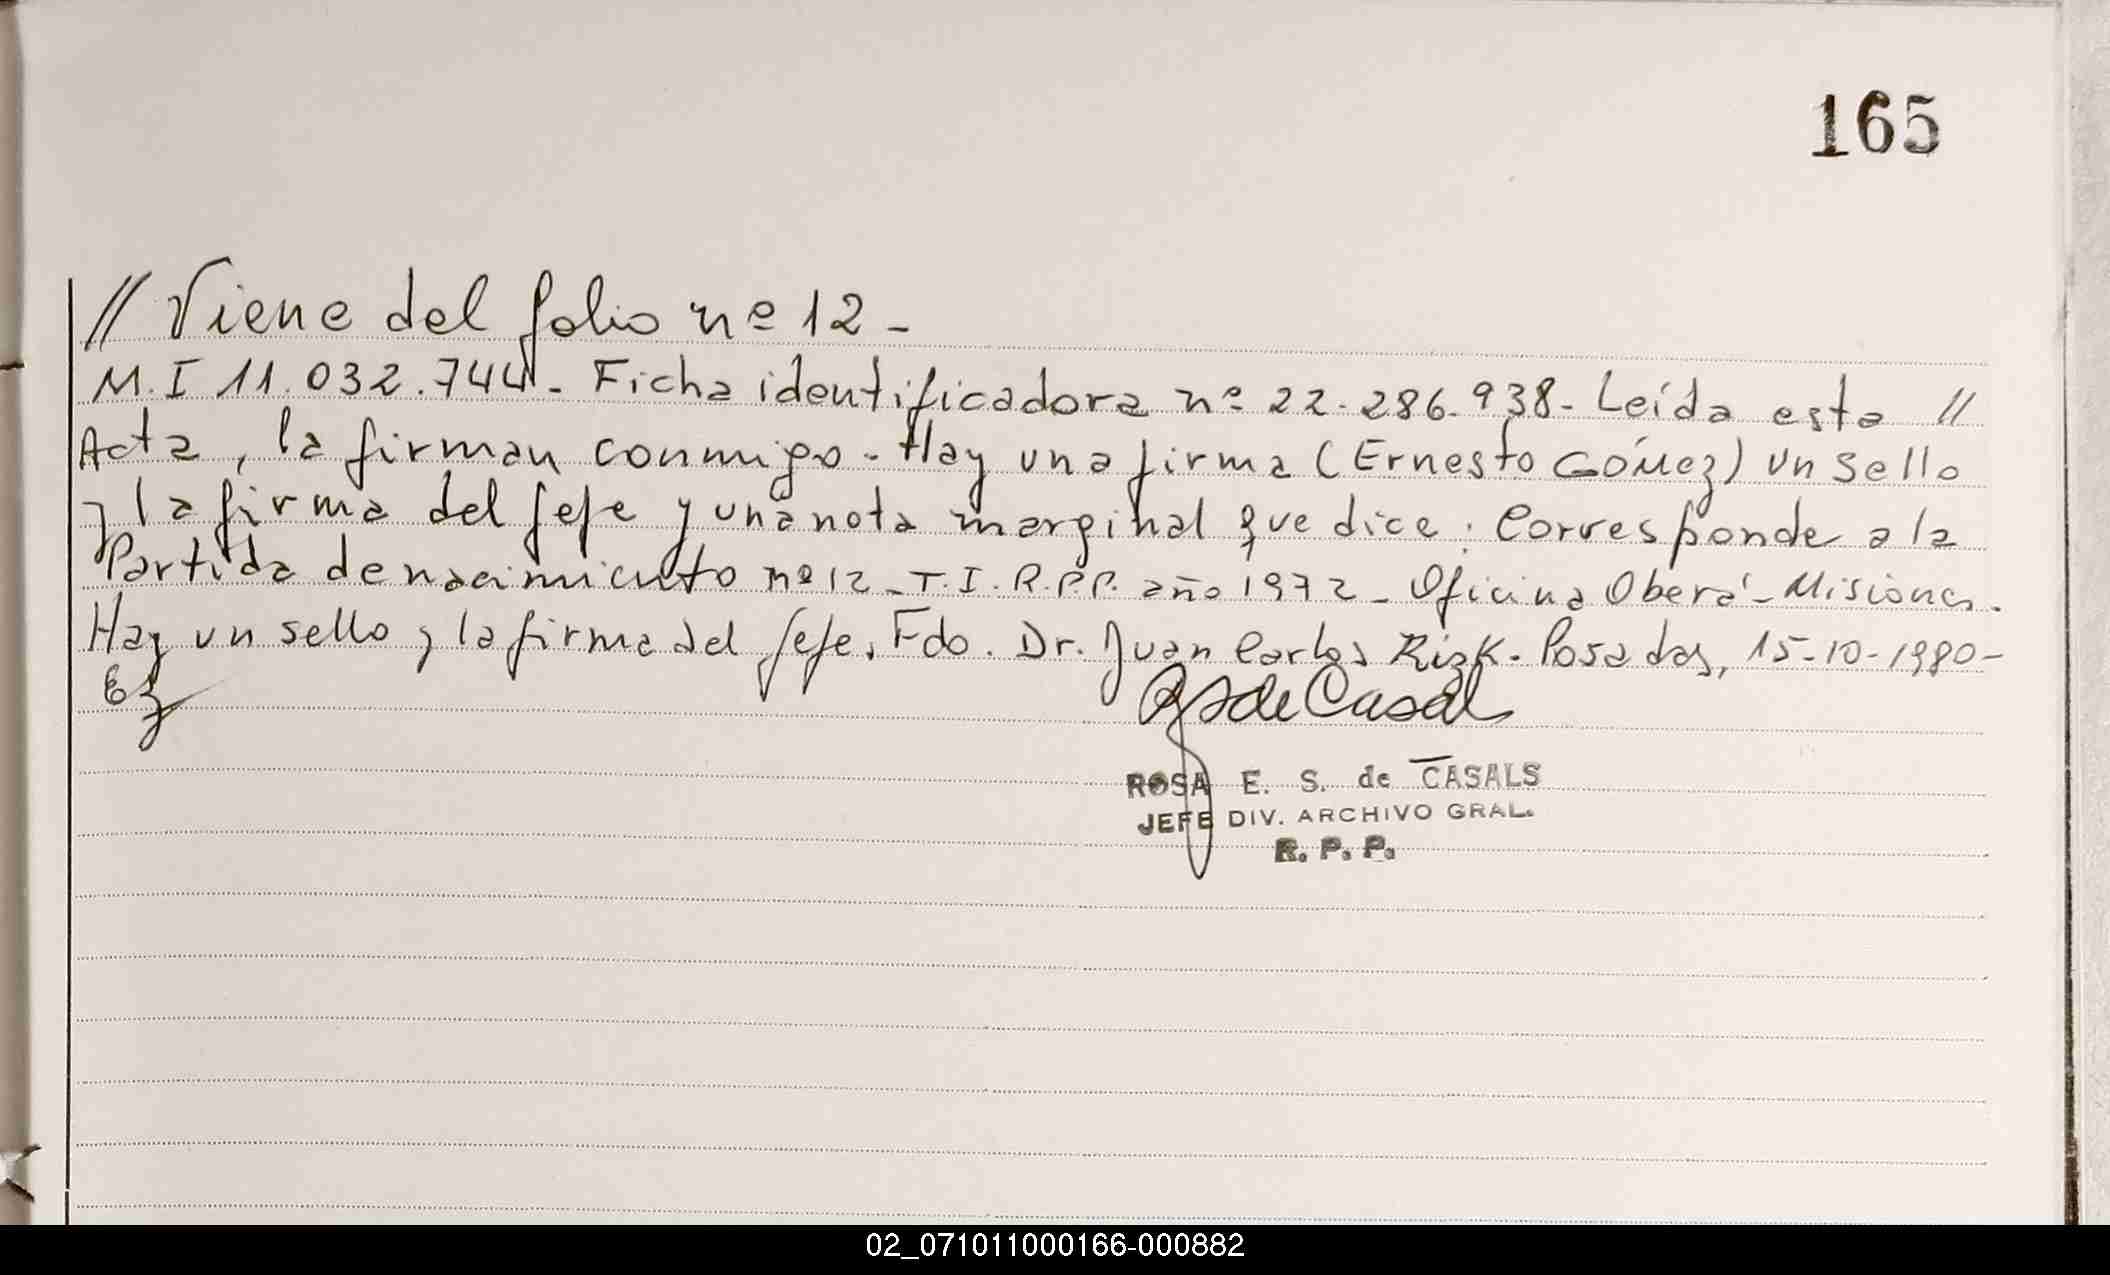 165
// Viene del folio nº 12 -
M.I 11.032.744. - Ficha identificadora nº 22.286.938 - Leída esta //
Acta, la firman conmigo - Hay una firma (Ernesto Gómez) un sello
y la firma del Jefe y una nota marginal que dice: Corresponde a la
Partida de nacimiento nº 12 - T.I. R.P.P. año 1972 - Oficina Oberá - Misiones.
Hay un sello y la firma del Jefe. Fdo. Dr. Juan Carlos Rizk. Posadas, 15-10-1980 -
de Casal
ROSA E. S. de CASALS
JEFE DIV. ARCHIVO GRAL.
R. P. P.
02_071011000166-000882